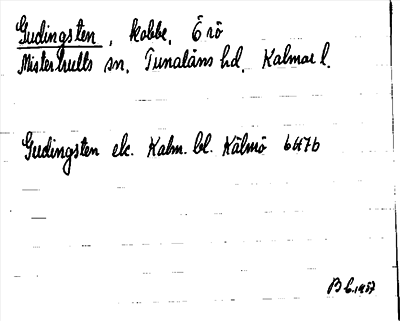 Gudingsten, kobbe, Ö rö
Misterhults sn, Tunaläns hd, Kalmar l.
Gudingsten ek. Kalm. bl. Kälmö 6476